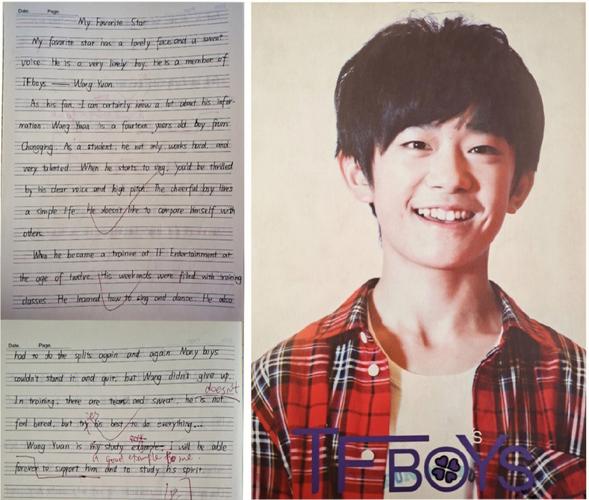 Date. Page.
My Favorite Star
My favorite star has a lovely face and a sweet
voice. He is a very lovely boy. He is a member of
TFboys —— Wang Yuan.
As his fan, I can certainly know a lot about his infor-
mation. Wang Yuan is a fourteen years old boy from
Chongqing. As a student, he not only works hard, and
very talented. When he starts to sing, you'd be thrilled
by his clear voice and high pitch. The cheerful boy lives
a simple life. He doesn't like to compare himself with
others.
When he became a trainee at TF Entertainment at
the age of twelve. His weekends were filled with training
classes. He learned how to sing and dance. He also
Date. Page.
had to do the splits again and again. Many boys
couldn't stand it and quit, but Wang didn't give up.
doesn't
In training, there are tears and sweat, he is not
feel bored, but try his best to do everything...
Wang Yuan is my study example. I will be able
a good example for me
forever to support him and to study his spirit.
TFBOYS